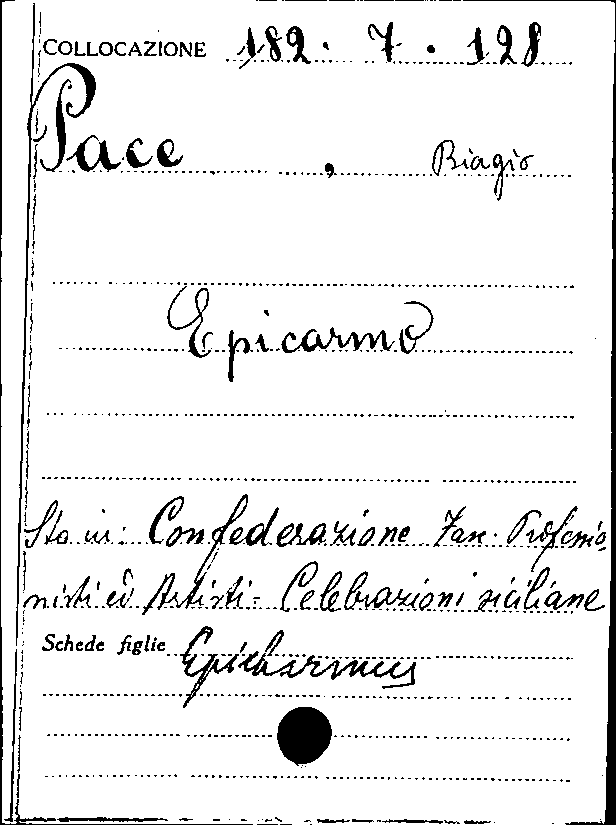 COLLOCAZIONE 182 . 7 . 128
Pace , Biagio
Epicarmo
Sta in: Confederazione Fasc. Professio
nisti ed Artisti - Celebrazioni siciliane
Schede figlie Epicharmus